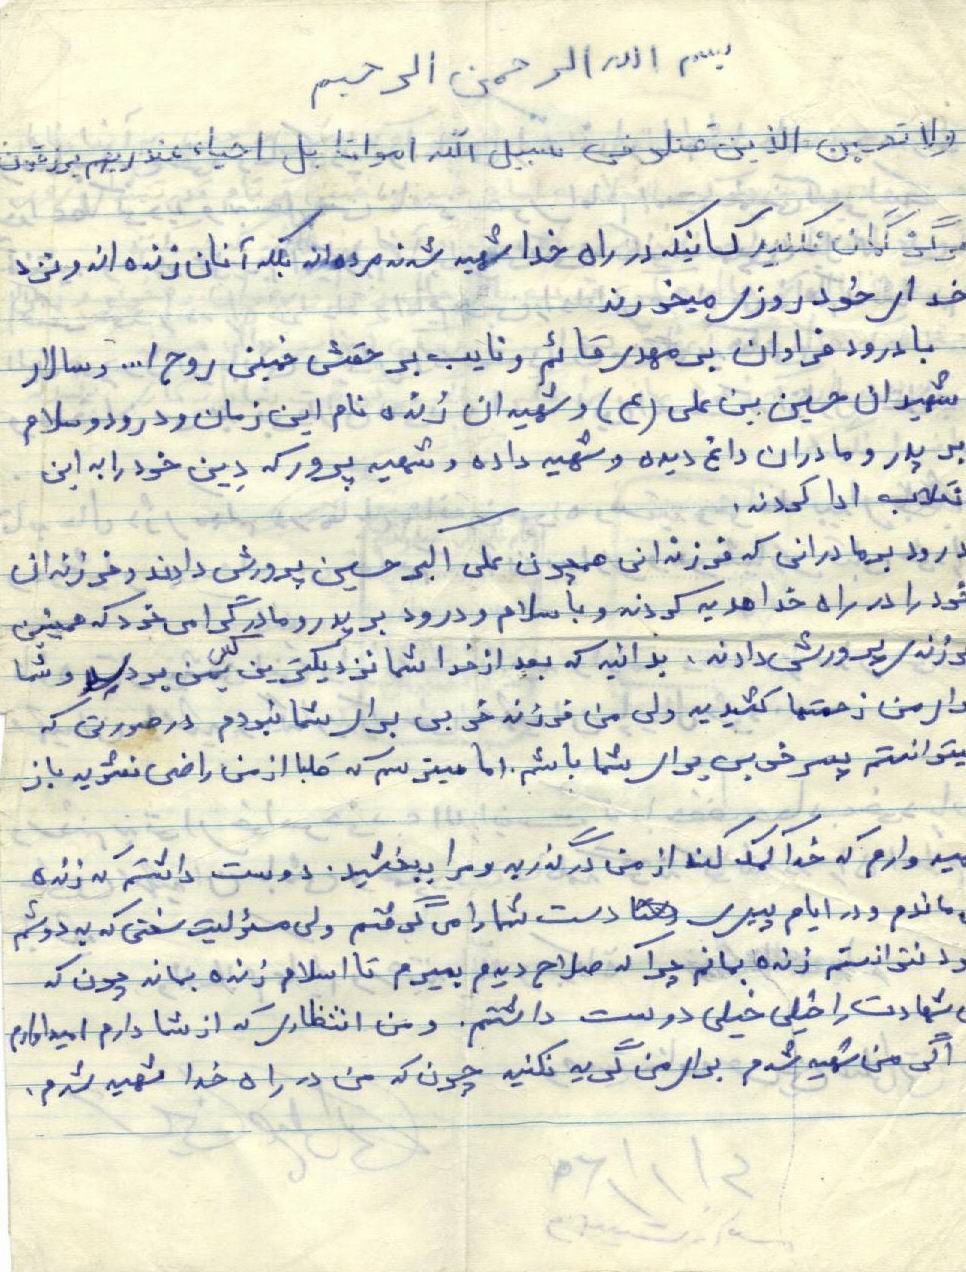 بسم الله الرحمن الرحیم
ولا تحسبن الذین قتلو فی سبیل الله امواتا بل احیاء عند ربهم یرزقون
هرگز گمان نکنید کسانیکه در راه خدا شهید شدند مرده اند بلکه آنان زنده اند و نزد
خدای خود روزی میخورند
با درود فراوان بر مهدی قائم و نایب بر حقش خمینی روح ا... و سالار
شهیدان حسین بن علی (ع) و شهیدان زنده نام این زمان و درود و سلام
بر پدر و مادران داغ دیده و شهید داده و شهید پرور که دِین خود را به این
نقلاب ادا کردند.
درود بر مادرانی که فرزندانی همچون علی اکبر حسین پرورش دادند و فرزندان
خود را در راه خدا هدیه کردند و با سلام و درود بر پدر و مادر گرامی خود که همچنین
فرزندی پرورش دادند. بدانید که بعد از خدا شما نزدیکترین کس بمن بودید و شما
برای من زحمتها کشیدید ولی من فرزند خوبی برای شما نبودم در صورتی که
میتوانستم پسر خوبی برای شما باشم. اما میترسم که قلبا از من راضی نشوید باز
مید وارم که خدا کمک کند از من درگذرید و مرا ببخشید. دوست داشتم که زنده
می ماندم و در ایام پیری دست شما را می گرفتم ولی مسئولیت سختی که به دوشم
بود نتوانستم زنده بمانم چرا که صلاح دیدم بمیرم تا اسلام زنده بماند چون که
شهادت را خیلی خیلی دوست داشتم. و من انتظاری که از شما دارم امیدوارم
اگر من شهید شدم برای من گریه نکنید چون که من در راه خدا شهید شدم.